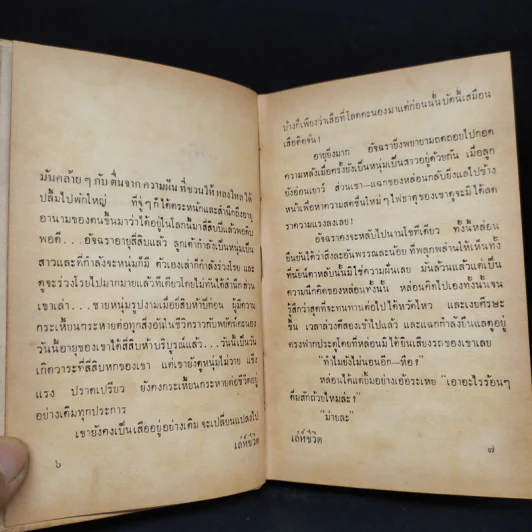 มันคล้าย ๆ กับ ตื่นจาก ความฝัน ที่ชวนให้ หลงใหลได้
ปลื้มไปพักใหญ่ ที่จู่ ๆ ก็ได้ตระหนักและสำนึกถึงอายุ
อานามของตนขึ้นมาว่าได้อยู่ในโลกนี้มาสี่สิบปีแล้วพอดับ
พอดี . . . อัจฉราอายุสี่สิบแล้ว ลูกเต้ากำลังเป็นหนุ่มเป็น
สาวและที่กำลังจะหนุ่มก็มี ตัวเองเล่าก็กำลังร่วงโรย และ
ดูจะร่วงโรยไปมากมายแล้วทีเดียวโดยไม่ทันได้สำนึก ส่วน
เขาเล่า . . . ชายหนุ่มรูปงามเมื่อยี่สิบห้าปีก่อน ผู้มีความ
กระเหี้ยนกระหายต่อทุกสิ่งอันในชีวิตราวกับพยัคฆ์คะนอง
วันนี้อายุของเขาได้สี่สิบห้าบริบูรณ์แล้ว. . .วันนี้เป็นวัน
เกิดวาระที่สี่สิบหกของเขา แต่เขายังดูหนุ่มไม่วาย แข็ง
แรง ปราดเปรียว ยังคงกระเหี้ยนกระหายต่อชีวิตอยู่
อย่างเดิมทุกประการ
เขายังคงเป็นเสืออยู่อย่างเดิม จะเปลี่ยนแปลงไป
เล่ห์ชีวิต
๖
บ้างก็เพียงว่าเสือที่โลดคะนองมาแต่ก่อนนั้น บัดนี้เสมือน
เสือติดจั่น !
อายุยิ่งมาก อัจฉรายิ่งพยายามถดถอยไปกอด
ความหลังเมื่อครั้งยังเป็นหนุ่มเป็นสาวอยู่ด้วยกัน เมื่อลูก
ยังอ่อนเยาว์ ส่วนเขา—แฉกของหล่อนกลับยิ่งแลไปข้าง
หน้าเพื่อหาความสดชื่นใหม่ ๆ ไฟธาตุของเขาดูจะมิได้ลด
ราความแรงลงเลย !
อัจฉราคงจะหลับไปนานโขทีเดียว ทั้งนี้หล่อน
ยืนยันได้ว่าสิ่งละอันพรรณละน้อย ที่พลุกพล่านให้เห็นทั้ง
ที่นัยน์ตาหลับนั้นมิใช่ความฝันเลย มันล้วนแล้วแต่เป็น
ความนึกคิดของหล่อนทั้งนั้น หล่อนคิดไปเองทั้งนั้นจน
รู้สึกว่าสุดที่จะทนทานต่อไปได้หวัดไหว และเงยศีรษะ
ขึ้น เวลาล่วงตีสองเข้าไปแล้ว และแฉกกำลังยืนแลดูอยู่
ตรงฝากประตูโดยที่หล่อนมิได้ยินเสียงรถของเขาเลย
“ทำไมยังไม่นอนอีก—หือ ?”
หล่อนได้แต่ยิ้มอย่างเอ่อระเหย “เอาอะไรร้อนๆ
ดื่มสักถ้วยไหมล่ะ ?”
“ม่ายละ”
เล่ห์ชีวิต
๗